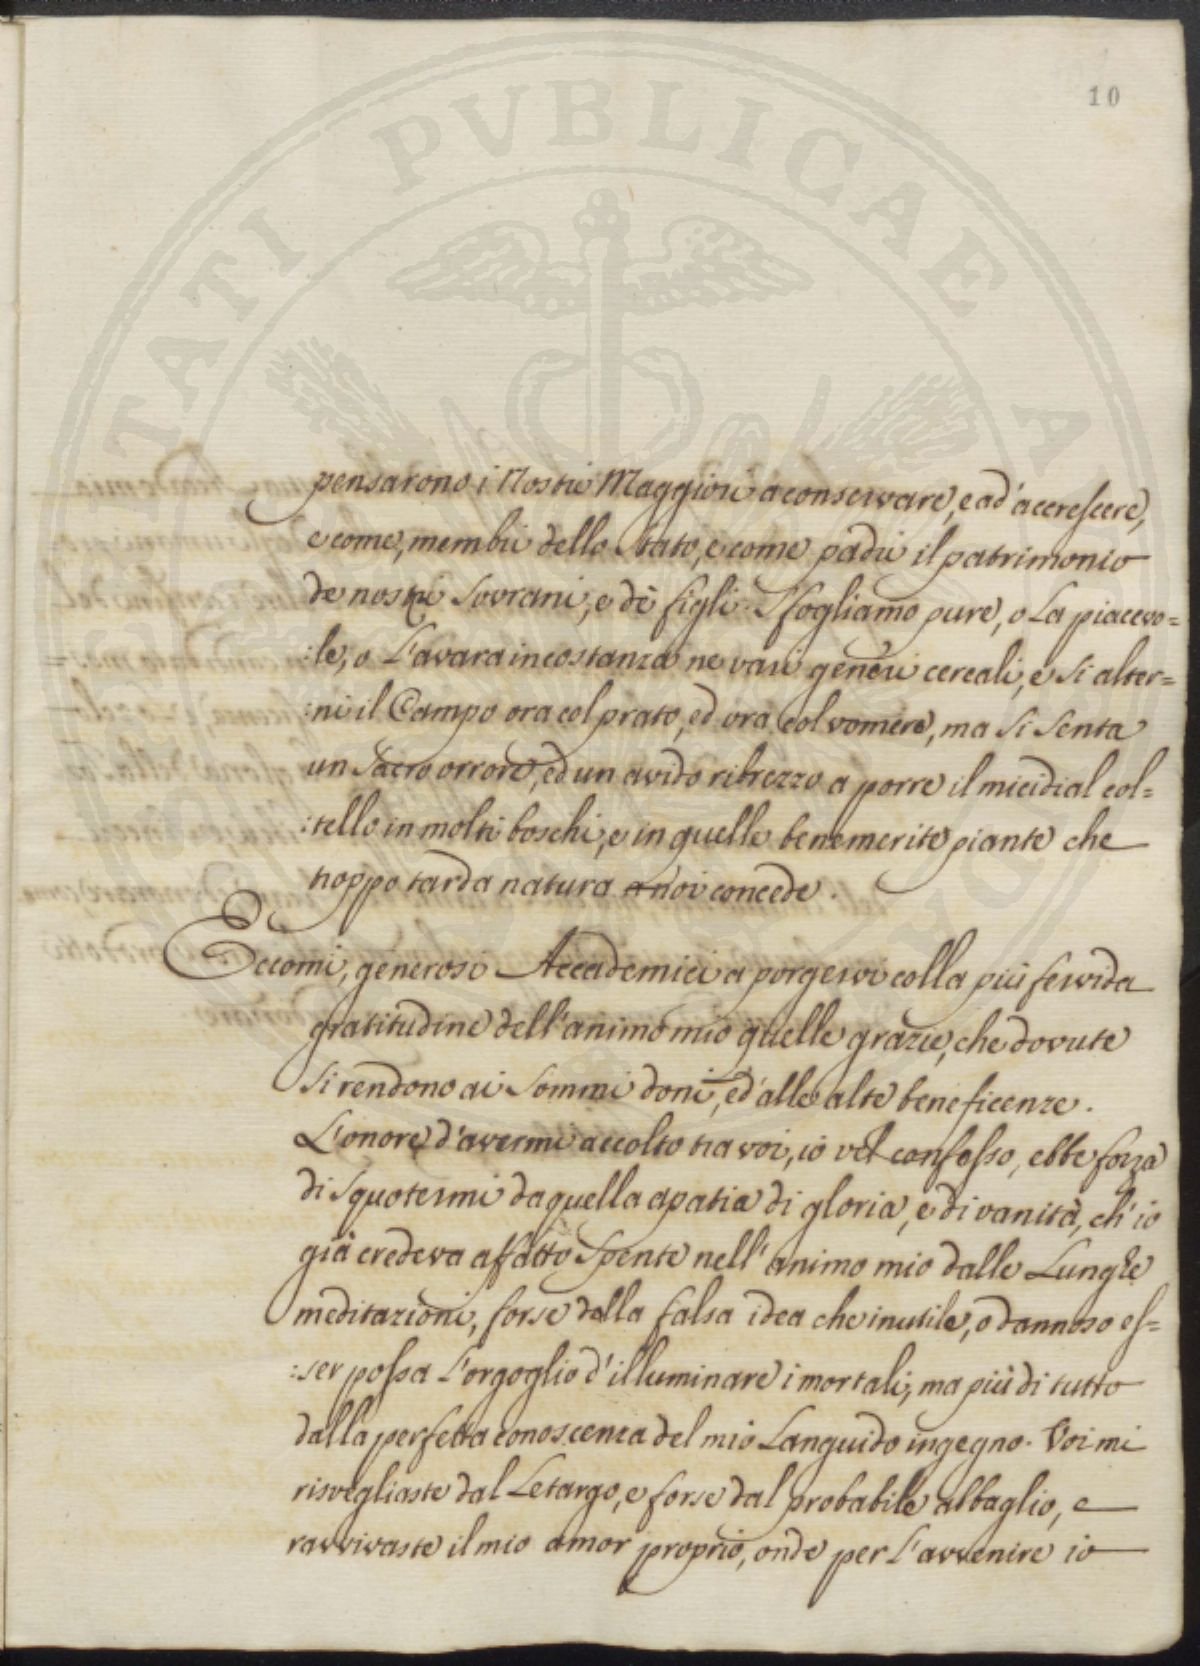 10
pensarono i Nostri Maggiori a conservare, e ad' accrescere,
e come, membri dello Stato, e come padri il patrimonio
de nostri Sovrani, e dè figli. Sfogliamo pure, o La piacevo=
:le, o L'avara incostanza ne varj generi cereali, e Si alter=
:ni il Campo ora col prato, ed ora col vomere, ma Si Senta
un Sacro orrore, ed un avido ribrezzo a porre il micidial col=
:tello in molti boschi, e in quelle benemerite piante che
troppo tarda natura a noi concede.
Eccomi, generosi Accademici a porgervi colla più fervida
gratitudine dell'animo mio quelle grazie, che dovute
Si rendono ai Sommi doni, ed' alle alte beneficenze.
L'onore d'avermi accolto tra voi, io vel confesso, ebbe forza
di Squotermi da quella apatia di gloria, e di vanità, ch' io
già credeva affatto Spente nell' animo mio dalle Lunghe
meditazioni, forse dalla falsa idea che inutile, o dannoso es=
:ser possa L'orgoglio d'illuminare i mortali, ma più di tutto
dalla perfetta conoscenza del mio Languido ingegno. Voi mi
risvegliaste dal Letargo, e forse dal probabile abbaglio, e
ravvivaste il mio amor proprio, onde per L'avvenire io
PVBLICAE